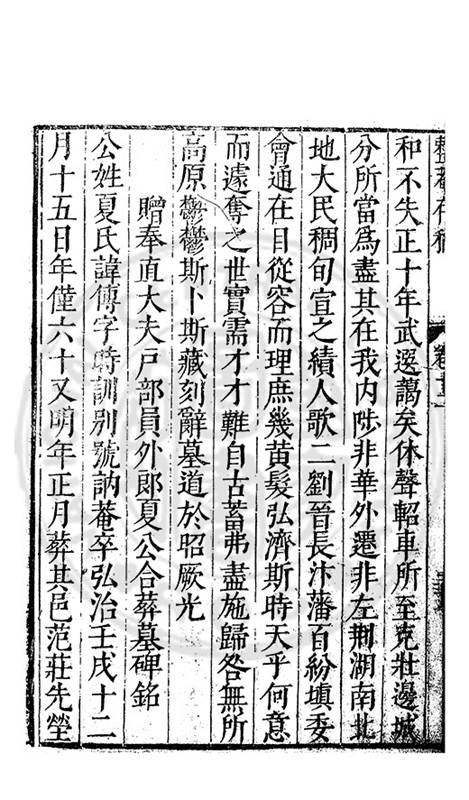 整菴存稿
卷十二
和不失正十年武選藹矣休聲軺車所至克壯邊城
分所當為盡其在我内陟非華外遷非左荆湖南北
地大民稠旬宣之績人歌二劉晉長汴藩百紛塡委
會通在目從容而理庶幾黄髮弘濟斯時天乎何意
而遽奪之世實需才才難自古蓄弗盡施歸咎無所
高原鬱鬱斯卜斯藏刻辭墓道於昭厥光
贈奉直大夫戸部員外郎夏公合葬墓碑銘
公姓夏氏諱傳字時訓别號訥菴卒弘治壬戌十二
月十五日年僅六十又明年正月葬其邑范莊先塋